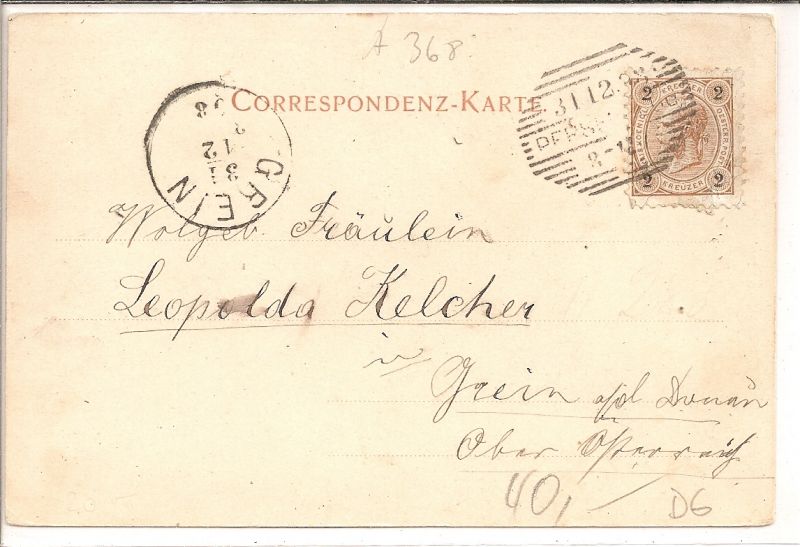 A 368
CORRESPONDENZ-KARTE
31 12
PERS
GREIN
31
12
2 KREUZER 2
2 KREUZER 2
Wolgeb. Fräulein
Leopolda Kelcher
in
Grein a/d Donau
Ober Österreich
40,-
D6